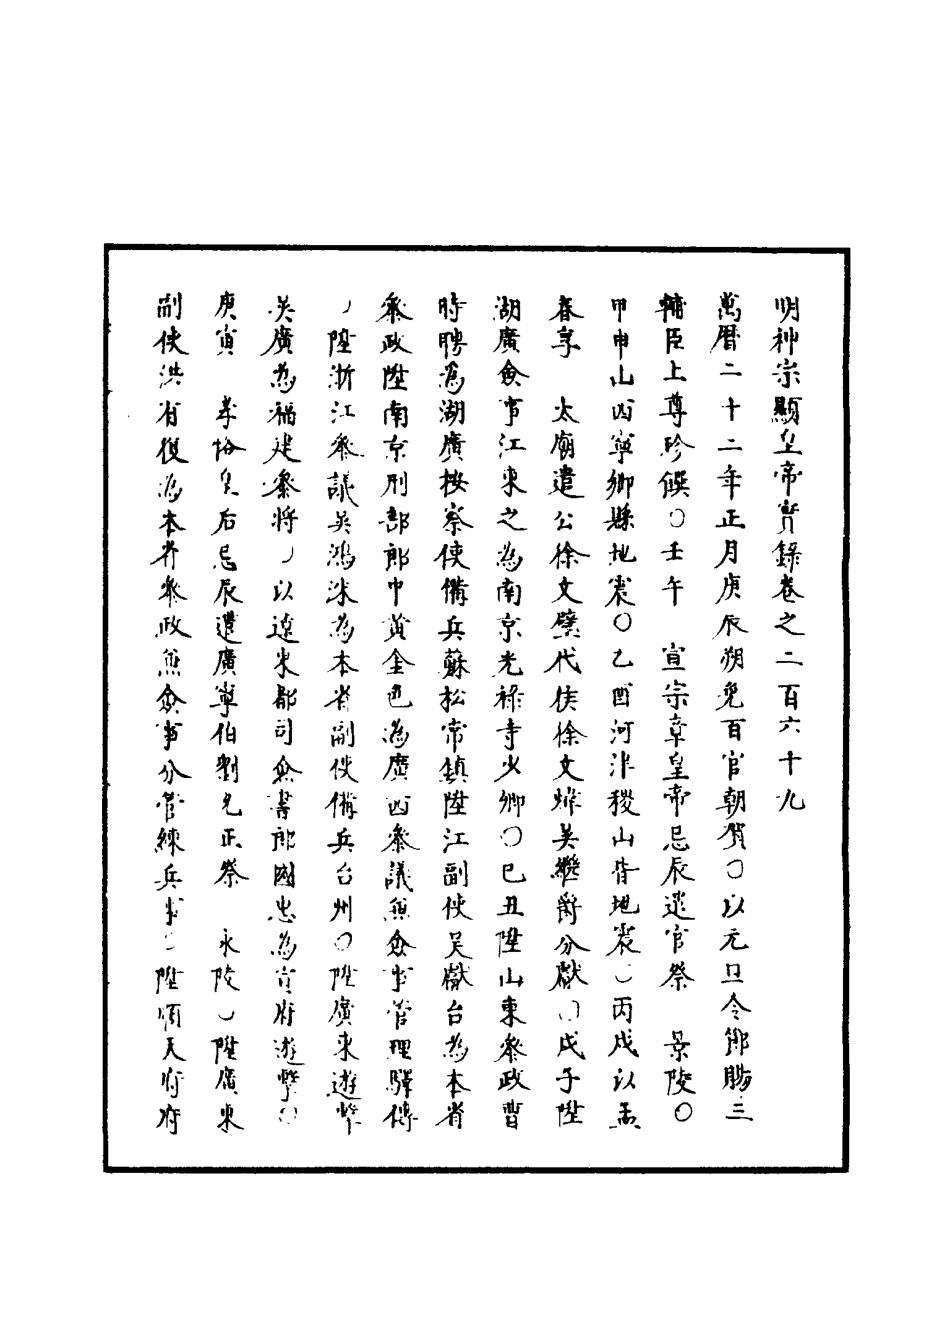 明神宗顯皇帝實錄卷之二百六十九
萬曆二十二年正月庚辰朔免百官朝賀○以元旦令節賜三
輔臣上尊珍饌○壬午　宣宗章皇帝忌辰遣官祭　景陵○
甲申山西寧鄉縣地震○乙酉河津稷山皆地震○丙戌以孟
春享　太廟遣公徐文璧代侯徐文煒吳繼爵分獻○戊子陞
湖廣僉事江東之為南京光祿寺少卿○己丑陞山東參政曹
時聘為湖廣按察使備兵蘇松常鎮陞江副使吳獻台為本省
參政陞南京刑部郎中黃金色為廣西參議兼僉事管理驛傳
○陞浙江參議吳鴻洙為本省副使備兵台州○陞廣東遊擊
吳廣為福建參將○以遼東都司僉書郎國忠為宣府遊擊○
庚寅　孝恪皇后忌辰遣廣寧伯劉允正祭　永陵○陞廣東
副使洪有復為本省參政兼僉事分管練兵事○陞順天府府